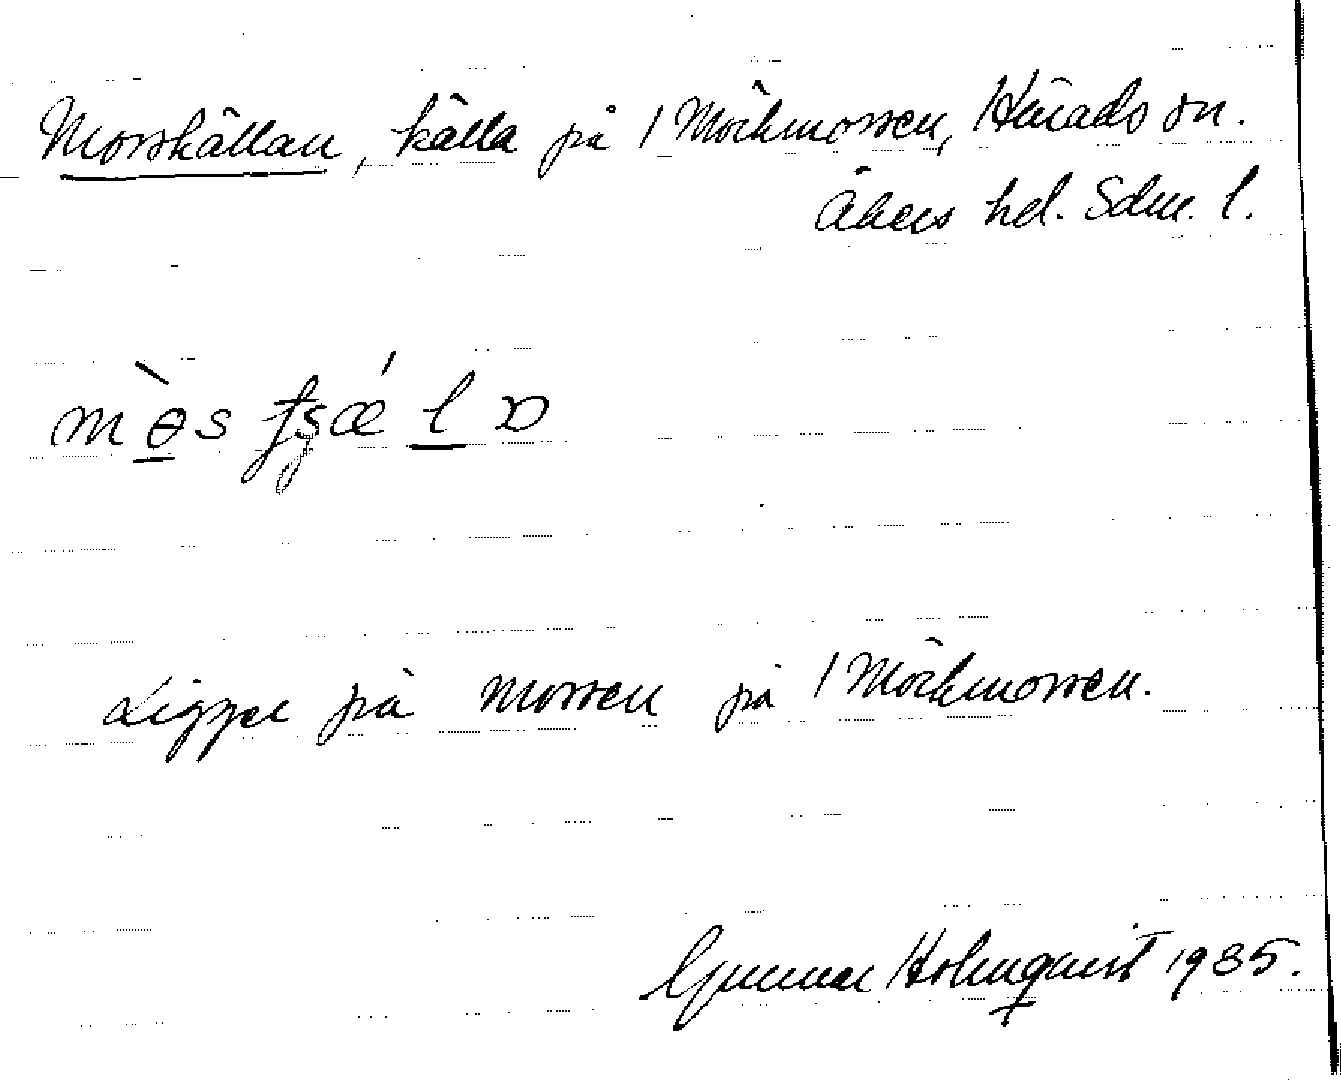 Morskällan, källa på / Mörkmossen, Härads sn.
Åkers hd. Södm. l.
mɵ̀s fʂǽ l ɒ
Ligger på mossen på / Mörkmossen.
Gunnar Holmqvist 1935.